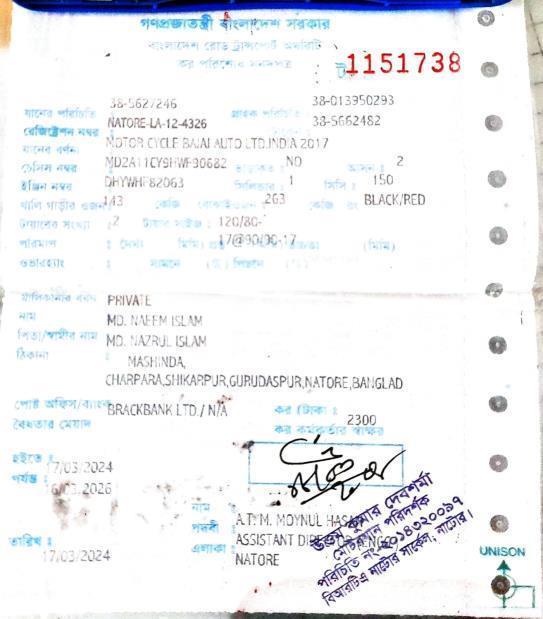 গণপ্রজাতন্ত্রী বাংলাদেশ সরকার
বাংলাদেশ রোড ট্রান্সপোর্ট অথরিটি
কর পরিশোধ সনদপত্র
1151738
যানের পরিচিতি 38-5627246 গ্রাহক পরিচিতি 38-013950293
রেজিষ্ট্রেশন নম্বর NATORE-LA-12-4326 38-5662482
যানের বর্ণনা MOTOR CYCLE BAJAJ AUTO LTD.INDIA 2017
চেসিস নম্বর MD2A11CY9HWF90682 ভাড়াকৃত NO আসন : 2
ইঞ্জিন নম্বর DHYWHF82063 সিলিন্ডার : 1 সিসি : 150
খালি গাড়ীর ওজন 143 কেজি বোঝাই ওজন 263 কেজি রং BLACK/RED
টায়ারের সংখ্যা : 2 টায়ার সাইজ : 120/80-
পরিমাপ : দৈর্ঘ্য (মিমি) 17@90/90-17 (মিমি)
ওভারহ্যাং : সামনে (%) পিছনে (%)
মালিকানার ধরন PRIVATE
নাম MD. NAEEM ISLAM
পিতা/স্বামীর নাম MD. NAZRUL ISLAM
ঠিকানা MASHINDA,
CHARPARA,SHIKARPUR,GURUDASPUR,NATORE,BANGLAD
পোষ্ট অফিস/ব্যাংক BRACKBANK LTD./ N/A কর (টাকা : 2300
বৈধতার মেয়াদ কর কর্মকর্তার স্বাক্ষর
হইতে : 17/03/2024
পর্যন্ত : 16/03/2026
নাম : A.T. M. MOYNUL HASAN
পদবী : ASSISTANT DIRECTOR (ENGG)
তারিখ : 17/03/2024 এলাকা : NATORE
কুমার দেবশর্মা
মোটরযান পরিদর্শক
পরিচিতি নং-২০১৪৩২০০৯৭
বিআরটিএ নাটোর সার্কেল, নাটোর।
UNISON